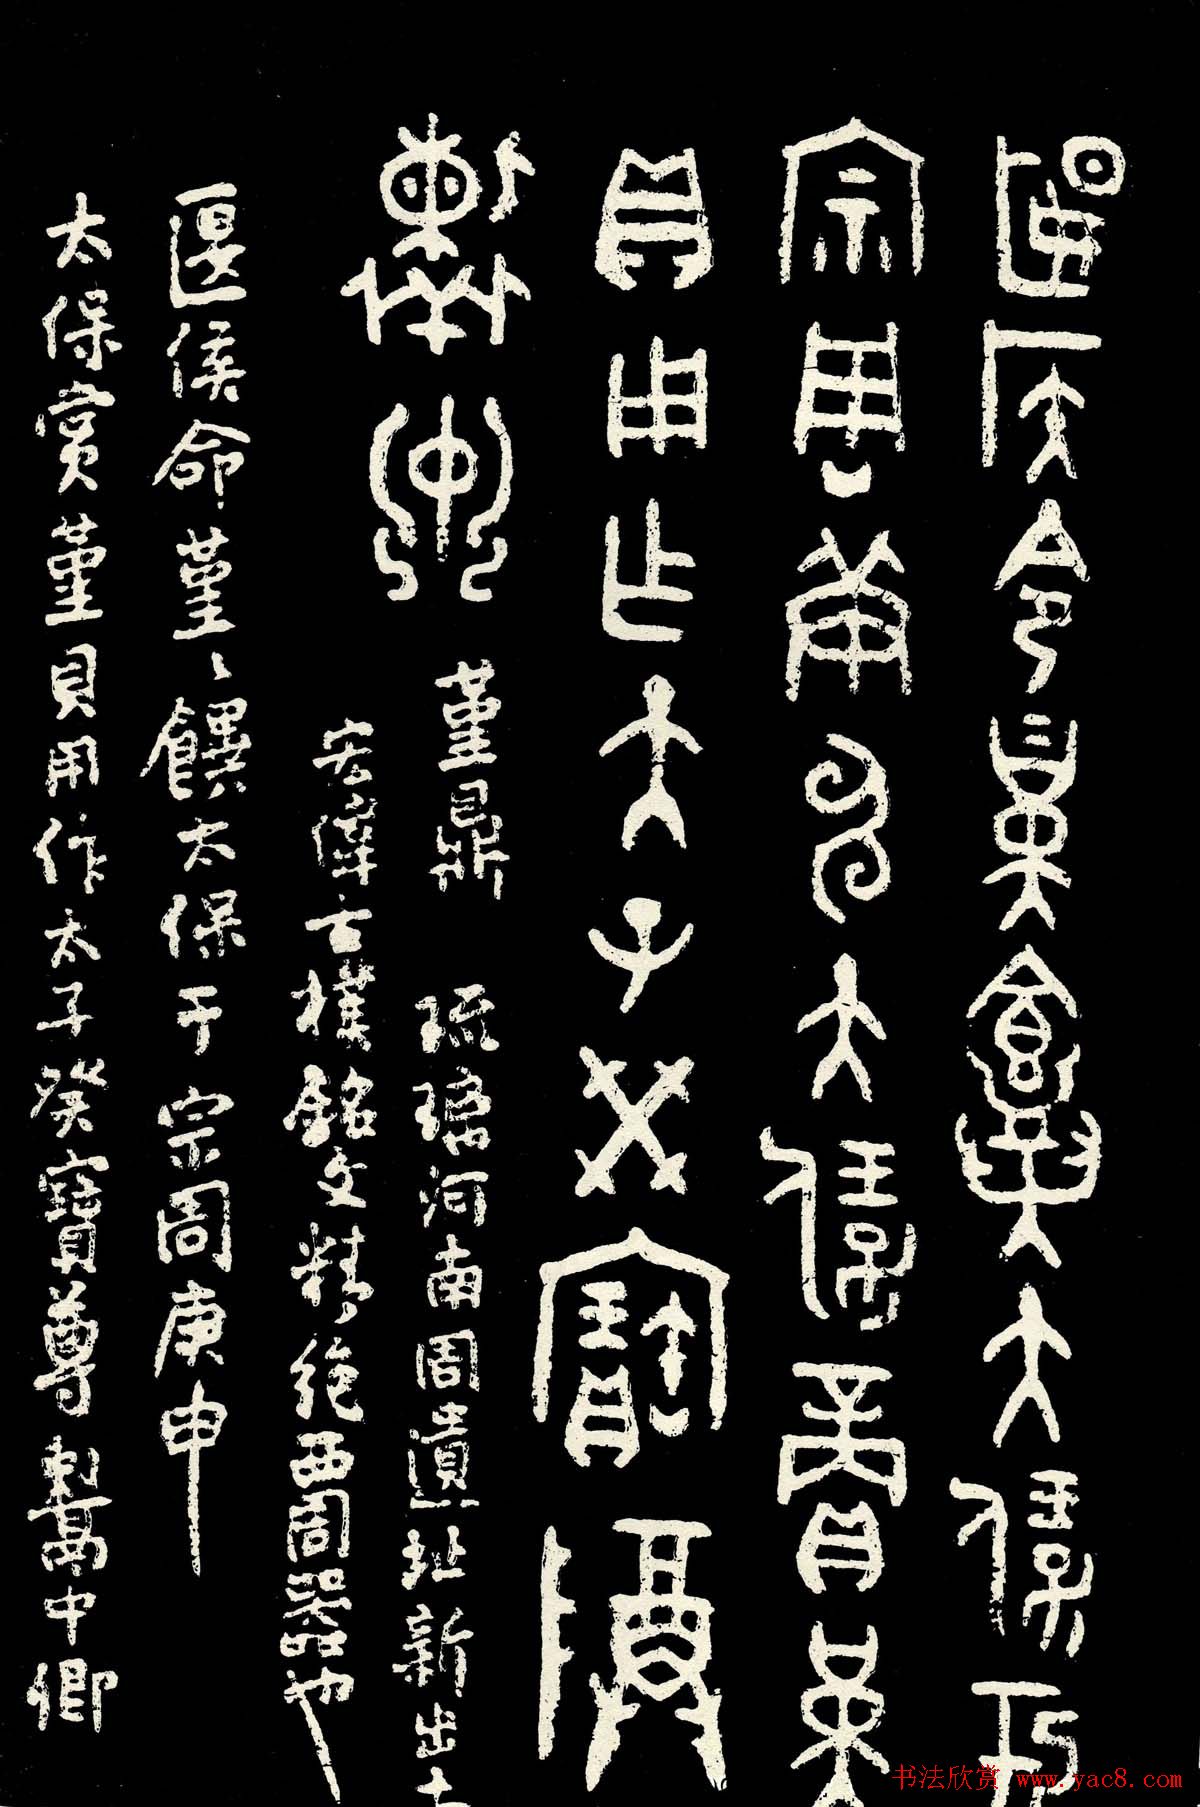 匽侯令堇饙大保于
宗周庚申大保賞堇
貝用作大子癸寶尊
堇鼎 琉璃河南周遺址新出土
宏偉古樸銘文精絕西周器也
匽侯命堇〻饌太保于宗周庚申
太保賞堇貝用作太子癸寶尊 中卿
书法欣赏 www.yac8.com